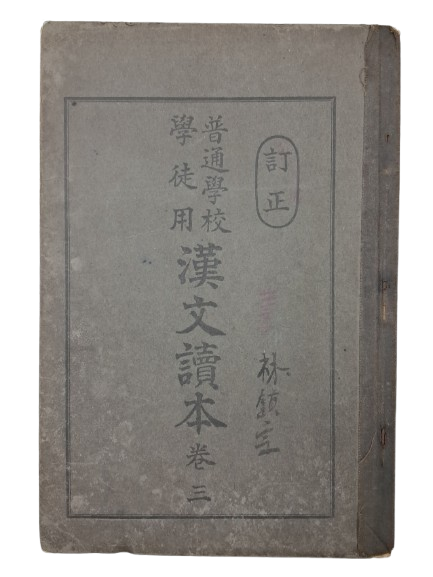 訂正
林鎮
普通學校
學徒用
漢文讀本 卷三